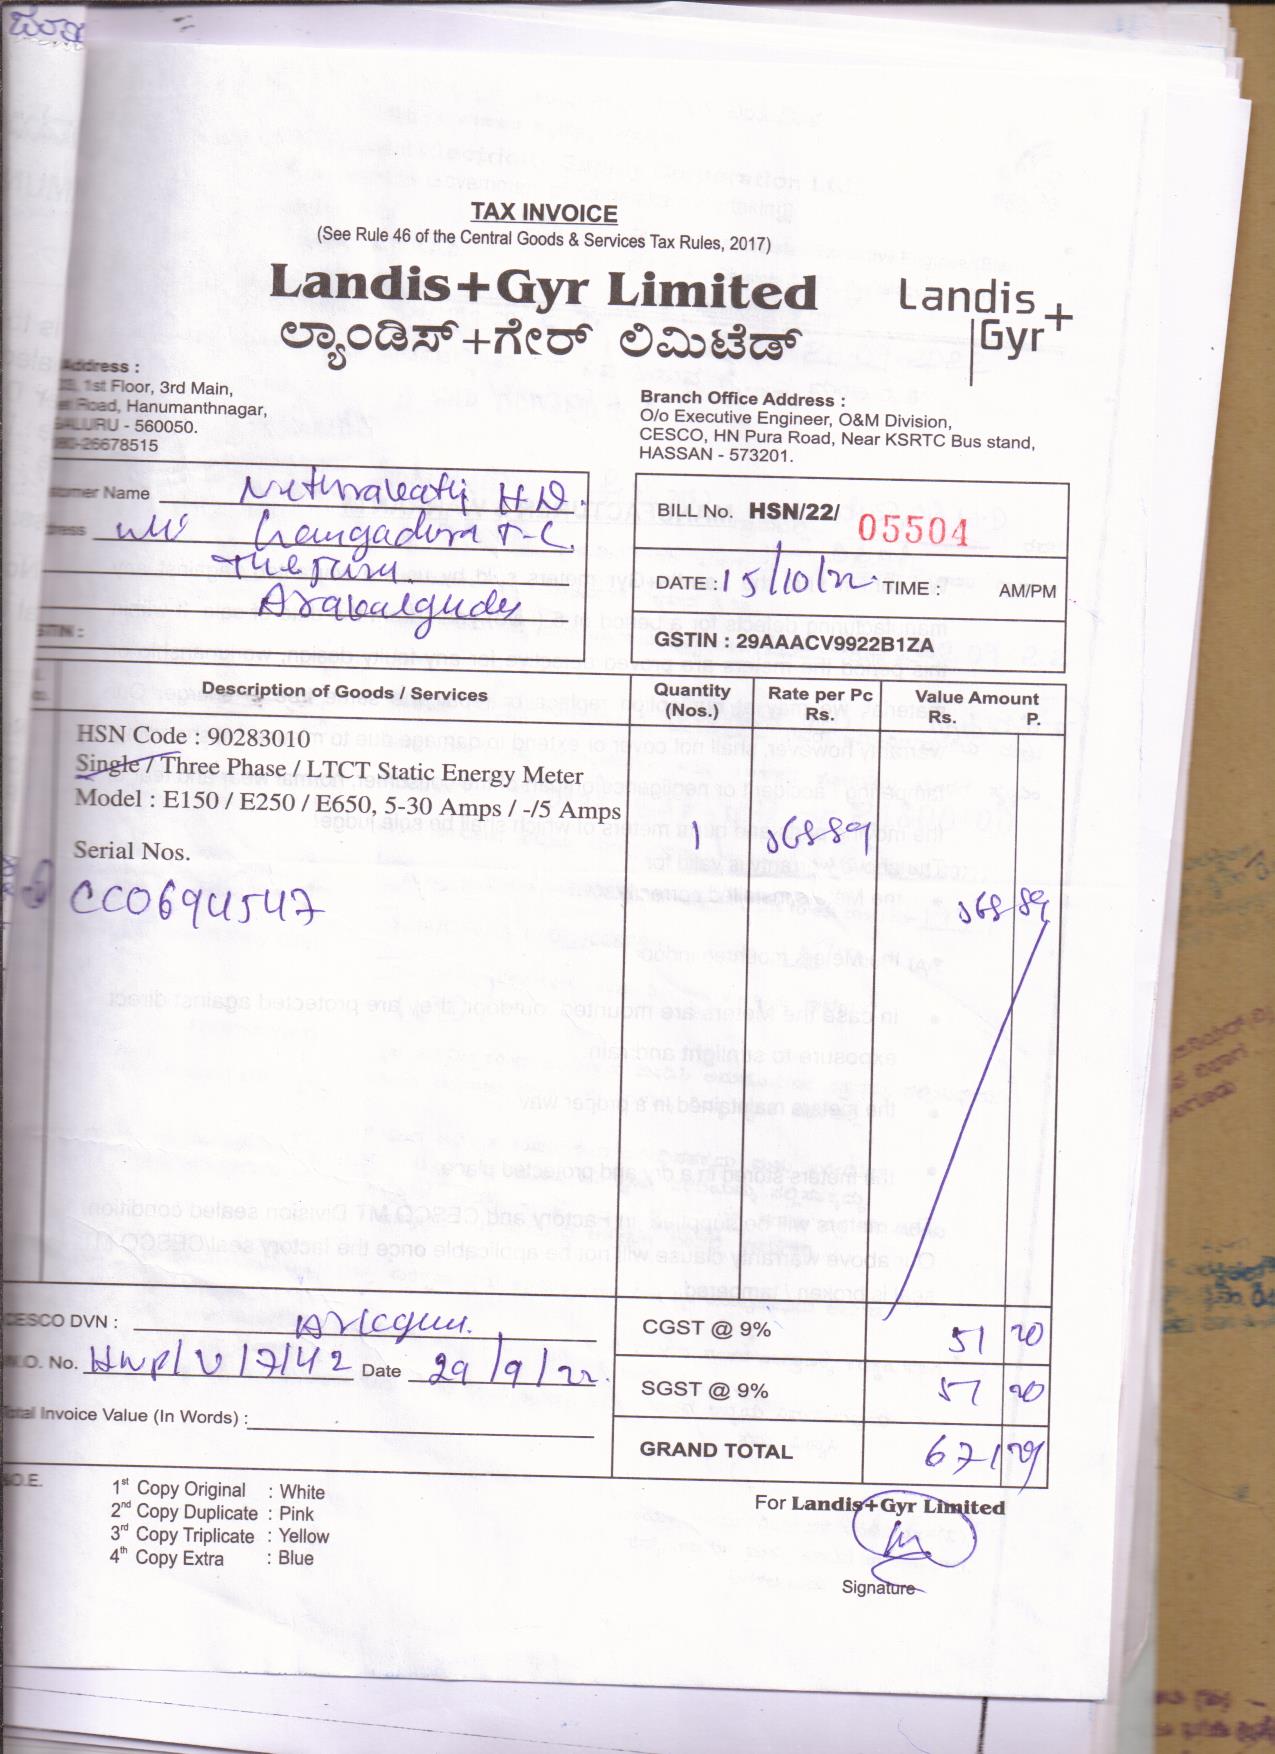 TAX INVOICE
(See Rule 46 of the Central Goods & Services Tax Rules, 2017)
Landis+Gyr Limited
ಲ್ಯಾಂಡಿಸ್+ಗೇರ್ ಲಿಮಿಟೆಡ್
Landis+
Gyr
Address :
1st Floor, 3rd Main,
Road, Hanumanthnagar,
- 560050.
-26678515
Branch Office Address :
O/o Executive Engineer, O&M Division,
CESCO, HN Pura Road, Near KSRTC Bus stand,
HASSAN - 573201.
Name Nethravathi H.D.
w/o Gangadhra T-C.
Arakalgudu
BILL No. HSN/22/ 05504
DATE : 15/10/22. TIME : AM/PM
GSTIN : 29AAACV9922B1ZA
Description of Goods / Services Quantity (Nos.) Rate per Pc Rs. Value Amount Rs. P.
HSN Code : 90283010
Single / Three Phase / LTCT Static Energy Meter
Model : E150 / E250 / E650, 5-30 Amps / -/5 Amps
1 568 89
Serial Nos.
CC0694547 568 89
CESCO DVN :
CGST @ 9% 51 20
W.O. No. HNP/V/7/42 Date 29/9/22.
SGST @ 9% 51 20
Total Invoice Value (In Words) :
GRAND TOTAL 671 29
1st Copy Original : White
2nd Copy Duplicate : Pink
3rd Copy Triplicate : Yellow
4th Copy Extra : Blue
For Landis+Gyr Limited
Signature